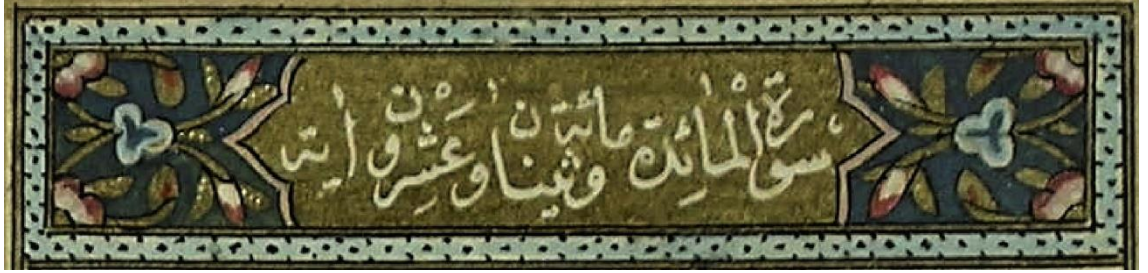 سورة المائدة مائة و ثنيان و عشرون اية